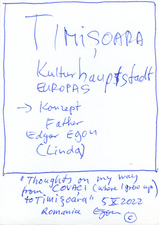 TIMIȘOARA
Kulturhauptstadt
EUROPAS
→ Konzept
Father
Edgar Egon
(Linda)
"Thoughts on my way
from COVACI (where I grew up)
to Timișoara" 5 X 2022
Romania Egon ©